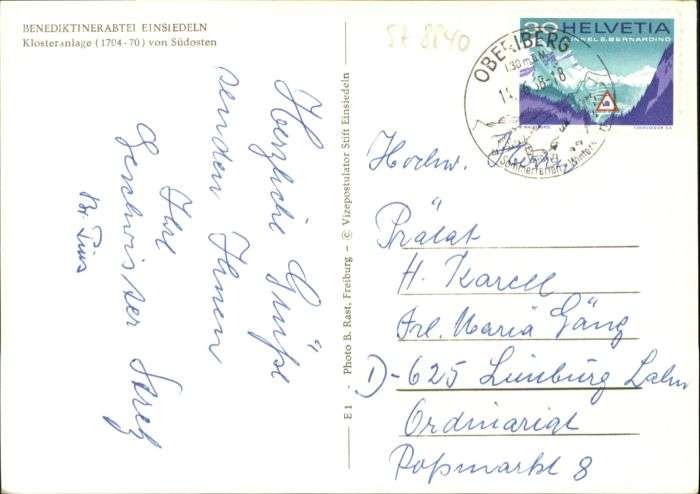 BENEDIKTINERABTEI EINSIEDELN
Klosteranlage (1704-70) von Südosten
St 8840
Herzliche Grüße
senden Ihnen
Ihre
Geschwister
Br. Pius
E 1 - Photo B. Rast, Freiburg – © Vizepostulator Stift Einsiedeln
30 HELVETIA
BERNARDINO
OBERIBERG
1130 m.ü.M.
Sommerferien
Hochw. Herrn
Prälat
H. Karell
Frl. Maria Gäng
D-625 Limburg Lahn
Ordinariat
Roßmarkt 8